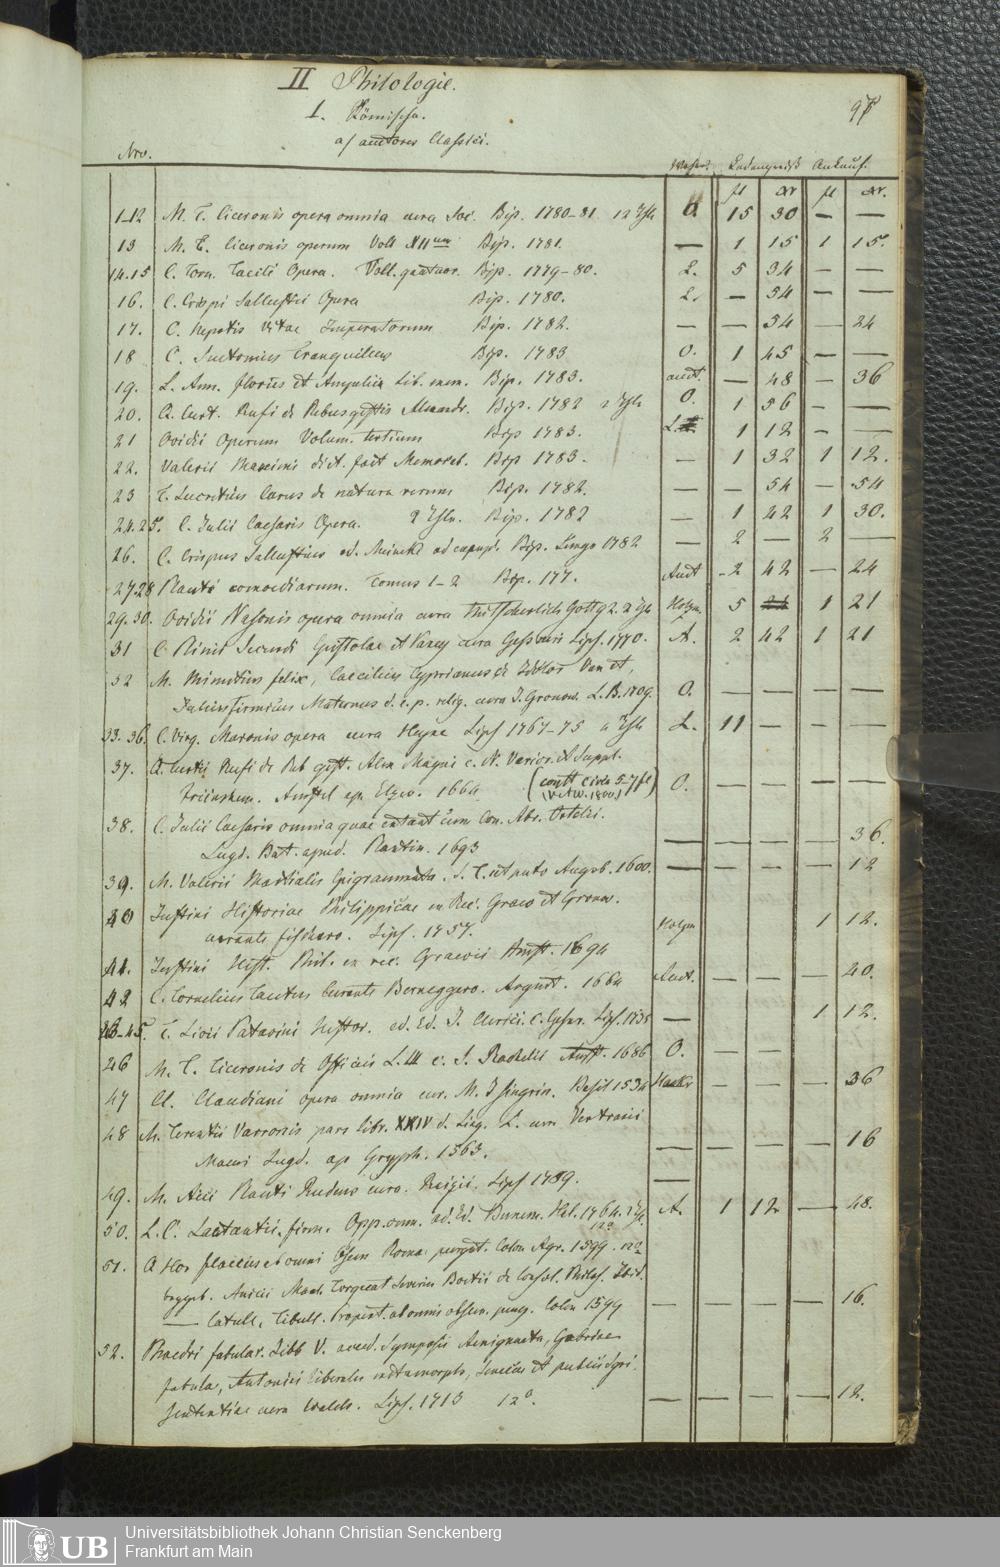 II Philologie.
1. Römische.
a/ auctores Classici.
97
Nro. Ladenpreiß Ankauf.
fl xr fl xr.
1-12 M. T. Ciceronis opera omnia cura Soc. Bip. 1780-81 12 Thle O. 15 30 — —
13 M. T. Ciceronis operum Voll XIIum Bip. 1781. — 1 15 1 15.
14.15 C. Corn. Taciti Opera. Voll. quatuor. Bip. 1779-80. L. 5 34 — —
16. C. Crispi Sallustii Opera Bip. 1780. L. — 54 — —
17. C. Nepotis Vitae Imperatorum Bip. 1782. — — 54 — 24
18 C. Suetonius Tranquillus Bip. 1783 O. 1 45 — —
19. L. Ann. Florus et Ampelii Lib. mem. Bip. 1783. auct. — 48 — 36
20. Q. Curt. Rufi de Rebus gestis Alexandr. Bip. 1782 2 Thle O. 1 56 — —
21 Ovidii Operum Volum. tertium Bip 1783. L. 1 12 — —
22. Valerii Maximi dict. fact Memorab. Bip 1783. — 1 32 1 12.
23 T. Lucretius Carus de natura rerum Bip. 1782. — — 54 — 54
24.25. C. Julii Caesaris Opera. 2 Thle. Bip. 1782 — 1 42 1 30.
26. C. Crispus Sallustius ed. ad exempl. Bip. Lemgo 1782 — 2 — 2 —
27.28 Plauti comoediarum. Tomus 1-2 Bip. 177. Auct - 2 42 — 24
29.30. Ovidii Nasonis opera omnia cura Mitscherlich Gotting 2 Thle Holzm 5 1 21
31 C. Plinii Secundi Epistolae et Paneg cura Gessneri Lips. 1770. A. 2 42 1 21
32 M. Minutius felix, Caecilius Cyprianus de Idolor Van et,
Julius Firmicus Maternus d. e. p. relig. cura J. Gronov. L.B. 1709. O. — — — —
33.36. C. Virg. Maronis opera cura Heyne Lips 1767-75 4 Thle L. 11 — — —
37. Q. Curtii Rufi de Reb gest. Alex Magni c. N. Varior. et Suppl.
Freinshem. Amstel ap. Elzev. 1664 (constt circa 5-7 fl) O. — — — —
38. C. Julii Caesaris omnia quae extant cum Con. Abr. Ortelii.
Lugd. Bat. apud. Plantin. 1693 — — — — 36.
39. M. Valerii Martialis Epigrammata. Augob. 1600. — — — — 12
40 Justini Historiae Philippicae ex Rec. Graev et Gronov.
curante fischero. Lips. 1757. Holzm 1 12.
41. Justini Hist. Phil. ex rec. Graevii Amst. 1694 Auct. — — — 40.
42 C. Cornelius Tacitus curante Berneggero. Argent. 1664
43-45. T. Livii Patavini Histor. ed. Ed. J. Clerici. c. Gesner. Lips. 1735 — 1 12.
46 M. T. Ciceronis de Officiis L. III c. J. Rachelii Amst. 1686 O. — —
47 Cl. Claudiani opera omnia cur. M. J Basil 1534 — — — 36
48 M. Terentii Varronis pars libr. XXIV d. Ling. L. cum Vertranii
Mauri Lugd. ap Gryph. 1563. — — — — 16
49. M. Acii Plauti Rudens cura. Reizii. Lips 1789. —
50. L. C. Lactantii firm. Opp. omn. ad. Ed. Bunem. Hal. 1764. 2 Thle. A. 1 12 — 48.
51. Q Hor flaccus ab omni obscen Romae purgat. Colon Agr. 1599. 12o
Anicii Manl. Torquat Severin Boetii de Consol. Philos. Ibid.
— Catull. Tibull. Propert. ab omni obscen. purg. Colon 1599 — — — — 16.
52. Phaedri fabular. Libb V. acced. Symposii Aenigmata, Gabriae
fabulae, Antonini Liberalis metamorph, Senecae et publii Syri
sententiae cura Walch. Lips. 1713 12o. — — — — 12.
Universitätsbibliothek Johann Christian Senckenberg
UB Frankfurt am Main